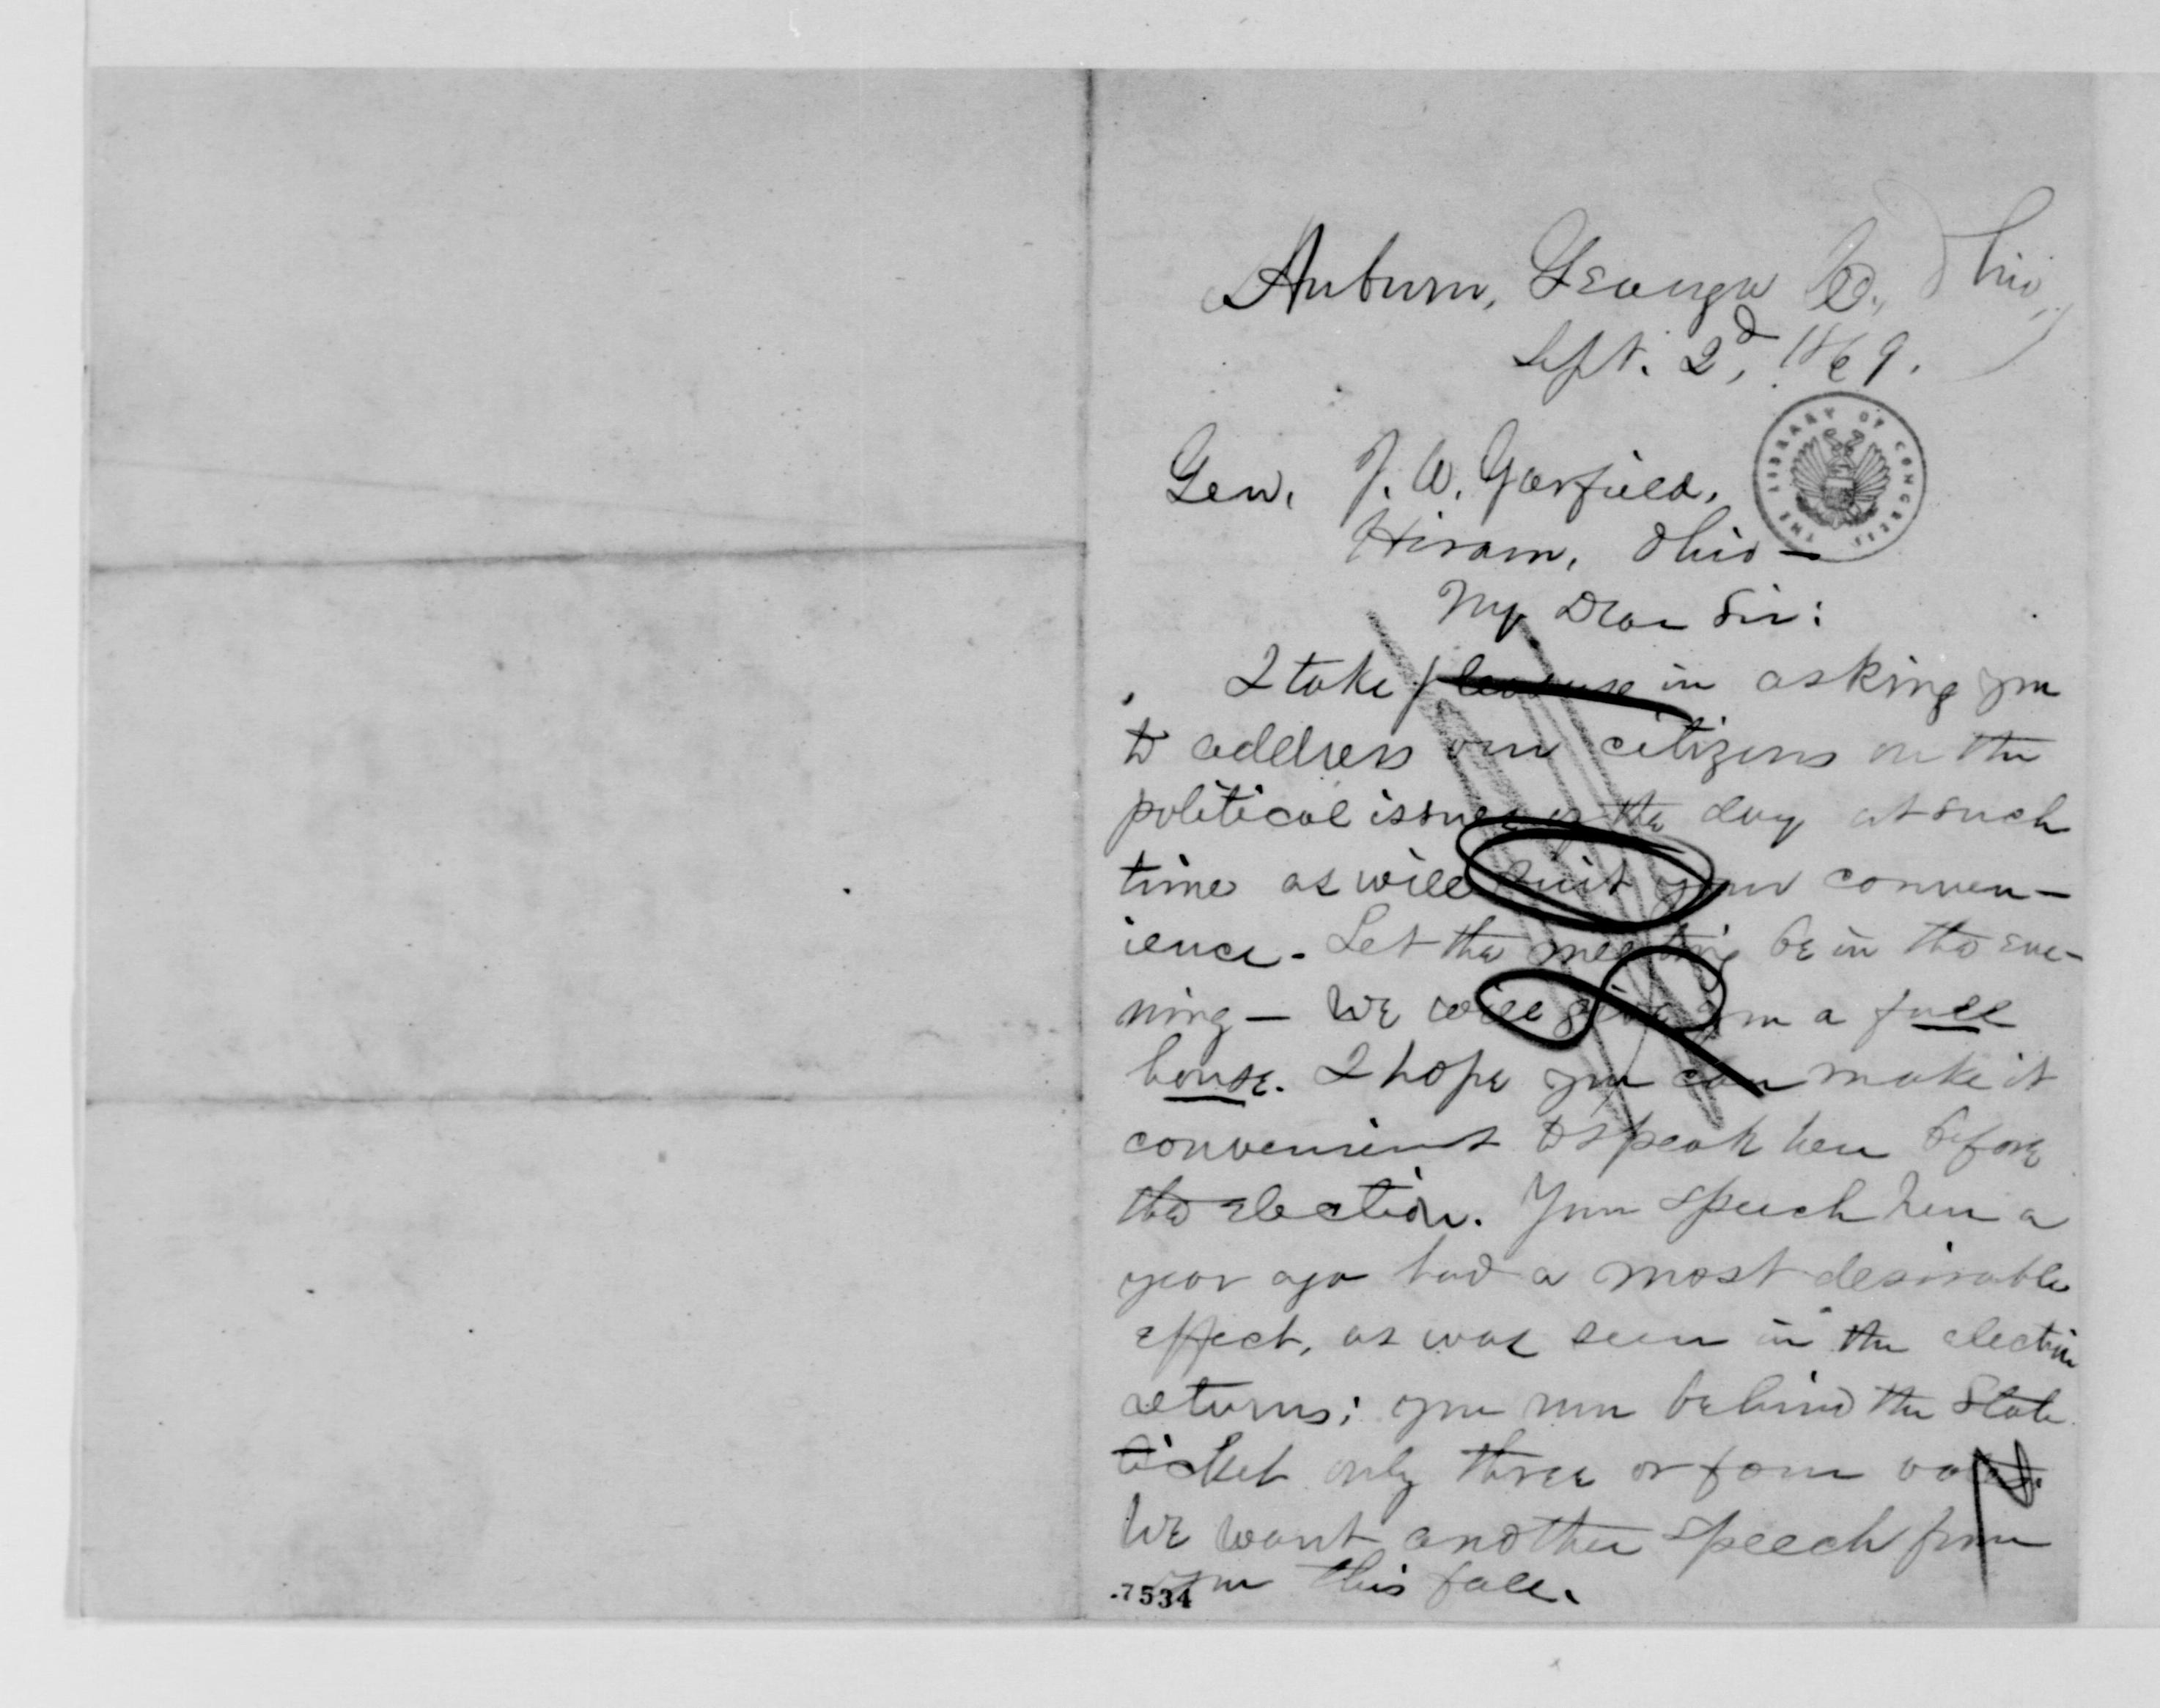 Auburn, Geauga Co., Ohio,
Sept. 2d, 1869.
THE LIBRARY OF CONGRESS
Gen. J. A. Garfield,
Hiram, Ohio —
My Dear Sir:
I take pleasure in asking you
to address our citizens on the
political issues of the day at such
time as will suit your conven-
ience. Let the meeting be in the eve-
ning — We will give you a full
house. I hope you can make it
convenient to speak here before
the election. Your speech here a
year ago had a most desirable
effect, as was seen in the election
returns; you run behind the State
ticket only three or four votes.
We want another speech from
you this fall.
7534